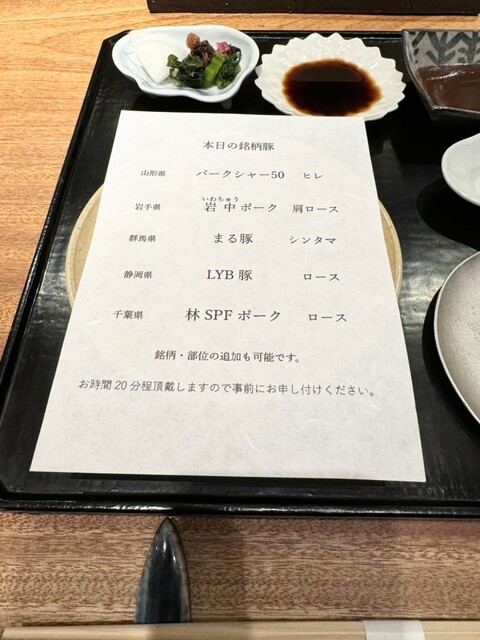 本日の銘柄豚
山形県 バークシャー50 ヒレ
いわちゅう
岩手県 岩中ポーク 肩ロース
群馬県 まる豚 シンタマ
静岡県 LYB豚 ロース
千葉県 林SPFポーク ロース
銘柄・部位の追加も可能です。
お時間20分程頂戴しますので事前にお申し付けください。